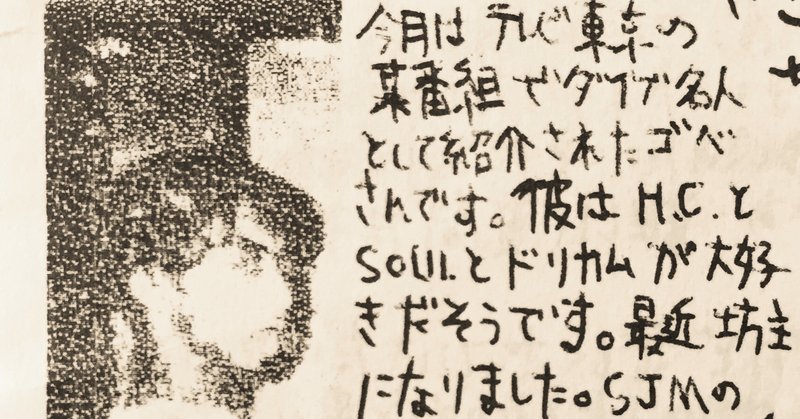 今月は テレビ東京の
某番組でダイブ名人
として紹介されたゴベ
さんです。彼は H.C.と
SOULとドリカムが大好
きだそうです。最近坊主
になりました。SJMの